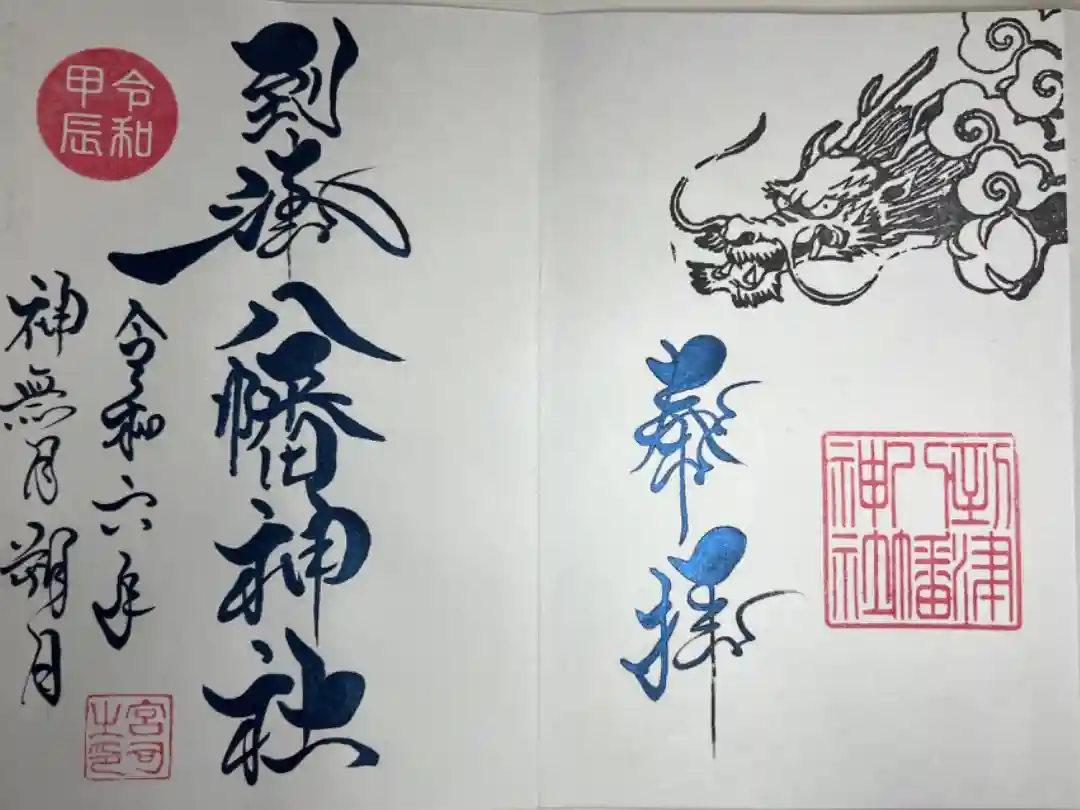 奉拝
到津八幡神社
到津八幡神社
令和六年
神無月朔月
令和
甲辰
宮司之印